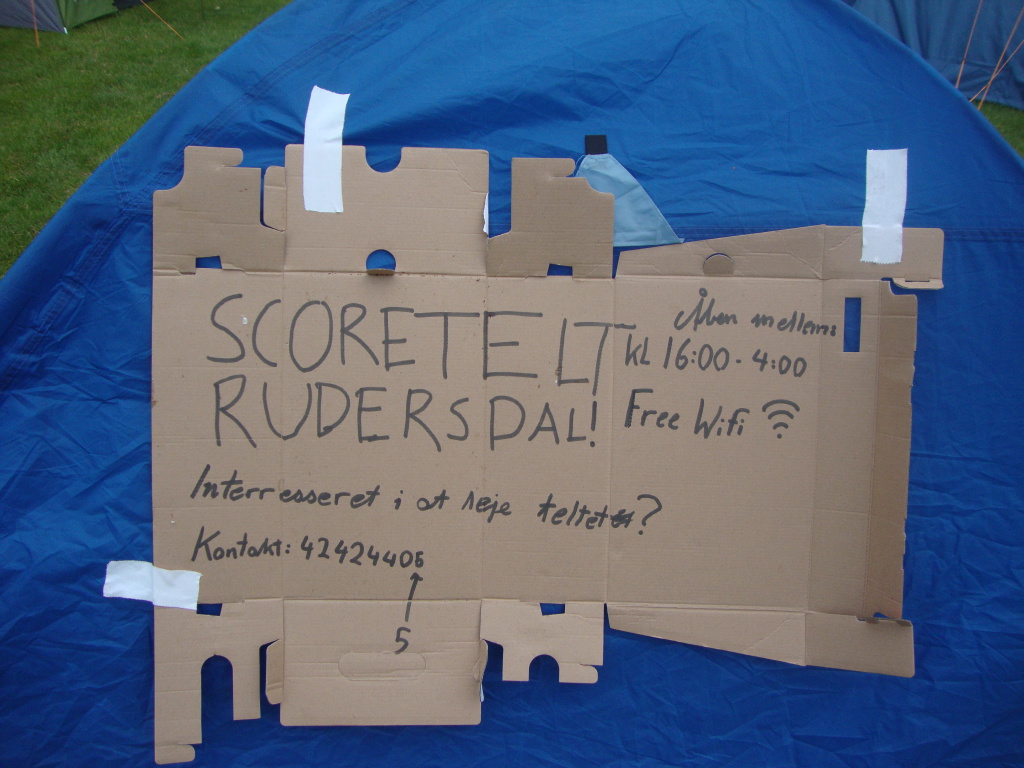 SCORETELT
RUDERSDAL!
Åben mellem:
KL 16:00 - 4:00
Free Wifi
Interresseret i at leje teltet?
Kontakt: 42424405
5